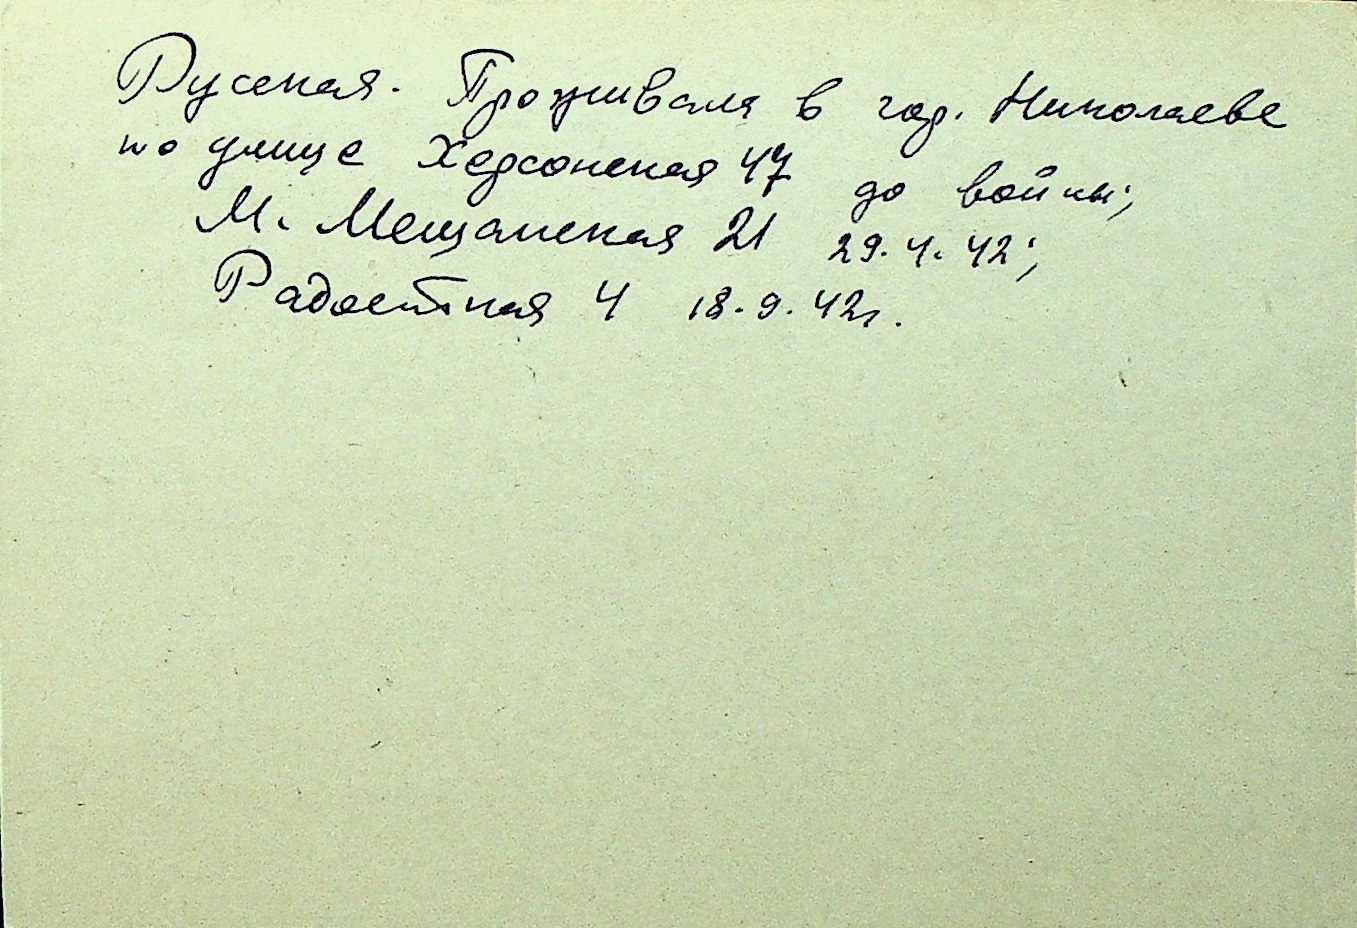 Русская. Проживала в гор. Николаеве
по улице Херсонская 47 до войны;
М. Мещанская 21 29.4.42;
Радостная 4 18.9.42г.